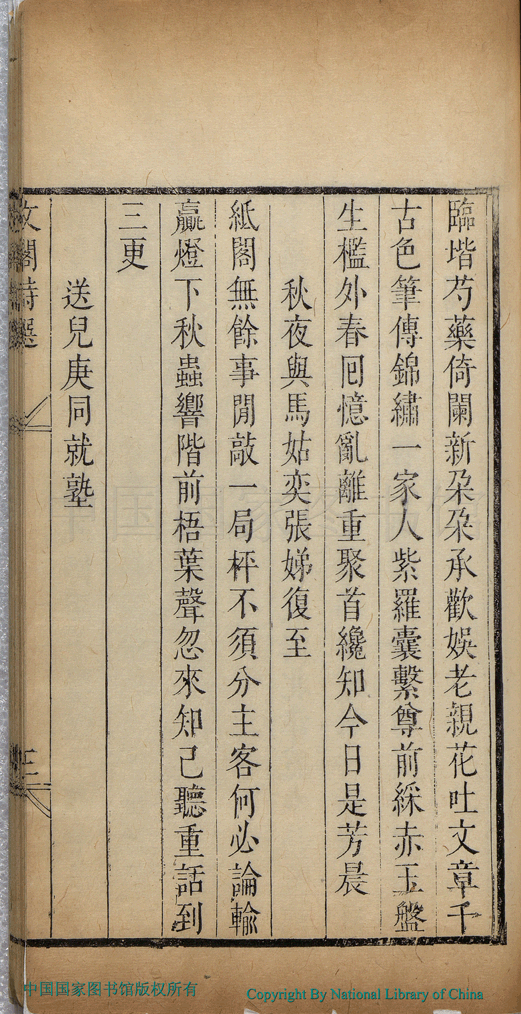 臨堦芍藥倚闌新朶朶承歡娛老親花吐文章千
古色筆傳錦繡一家人紫羅囊繫尊前綵赤玉盤
生檻外春囘憶亂離重聚首纔知今日是芳晨
秋夜與馬姑奕張娣復至
紙閣無餘事閒敲一局枰不須分主客何必論輸
贏燈下秋蟲響階前梧葉聲忽來知己聽重話到
三更
送兒庚同就塾
文閣詩選
三
中国国家图书馆版权所有
Copyright By National Library of China